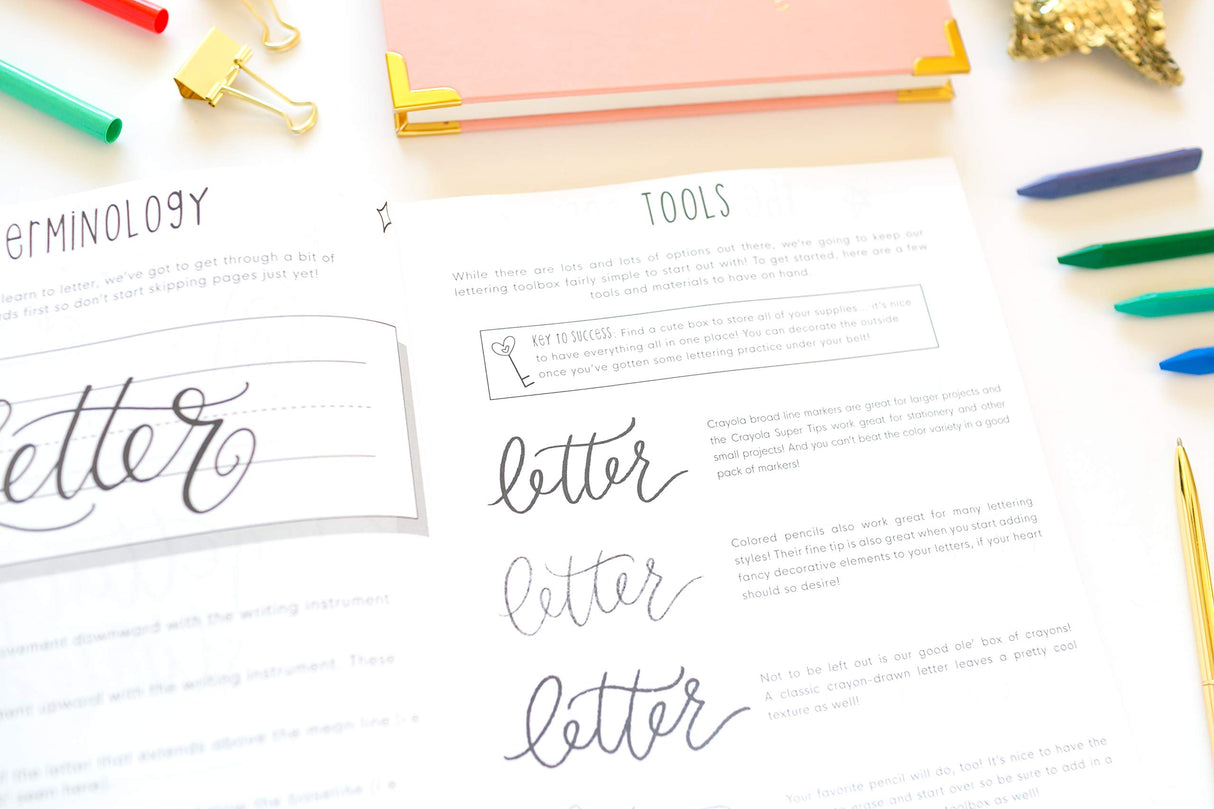 ERMINOLOGY
learn to letter, we've got to get through a bit of
ds first so don't start skipping pages just yet!
letter
ovement downward with the writing instrument
ment upward with the writing instrument. These
f the letter that extends above the mean line (i.e
seen here).
TOOLS
While there are lots and lots of options out there, we're going to keep our
lettering toolbox fairly simple to start out with! To get started, here are a few
tools and materials to have on hand.
KEY TO SUCCESS: Find a cute box to store all of your supplies... it's nice
to have everything all in one place! You can decorate the outside
once you've gotten some lettering practice under your belt!
letter
Crayola broad line markers are great for larger projects and
the Crayola Super Tips work great for stationery and other
small projects! And you can't beat the color variety in a good
pack of markers!
letter
Colored pencils also work great for many lettering
styles! Their fine tip is also great when you start adding
fancy decorative elements to your letters, if your heart
should so desire!
letter
Not to be left out is our good ole' box of crayons!
A classic crayon-drawn letter leaves a pretty cool
texture as well!
Your favorite pencil will do, too! It's nice to have the
erase and start over so be sure to add in a
toolbox as well!